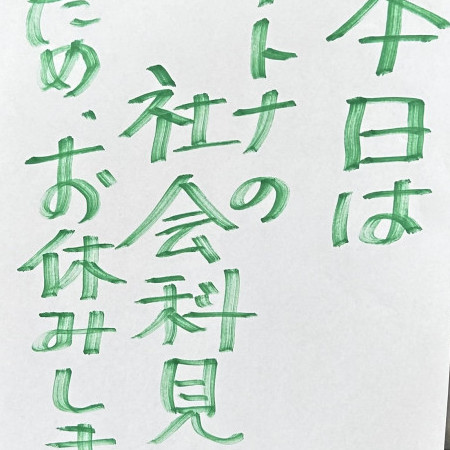 本日は
トナの
社会科見
ため、お休みしま